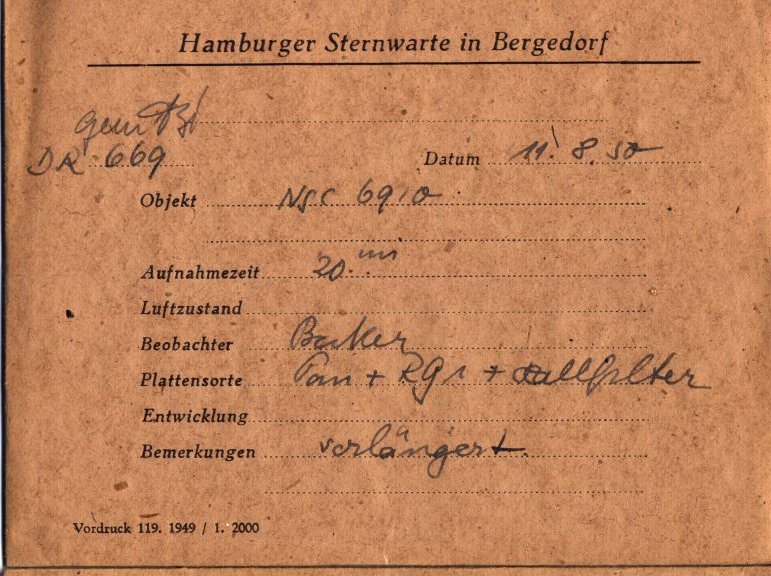 Hamburger Sternwarte in Bergedorf
DR 669
Datum 11. 8. 50
Objekt NGC 6910
Aufnahmezeit 20 m
Luftzustand
Beobachter
Plattensorte Pan + RG1 +
Entwicklung
Bemerkungen verlängert
Vordruck 119. 1949 / 1. 2000